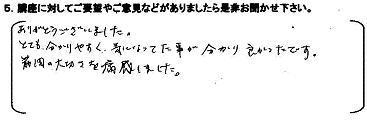 5. 講座に対してご要望やご意見などがありましたら是非お聞かせ下さい。
ありがとうございました。
とても分かりやすく、気になってた事が分かり良かったです。
筋肉の大切さを痛感しました。